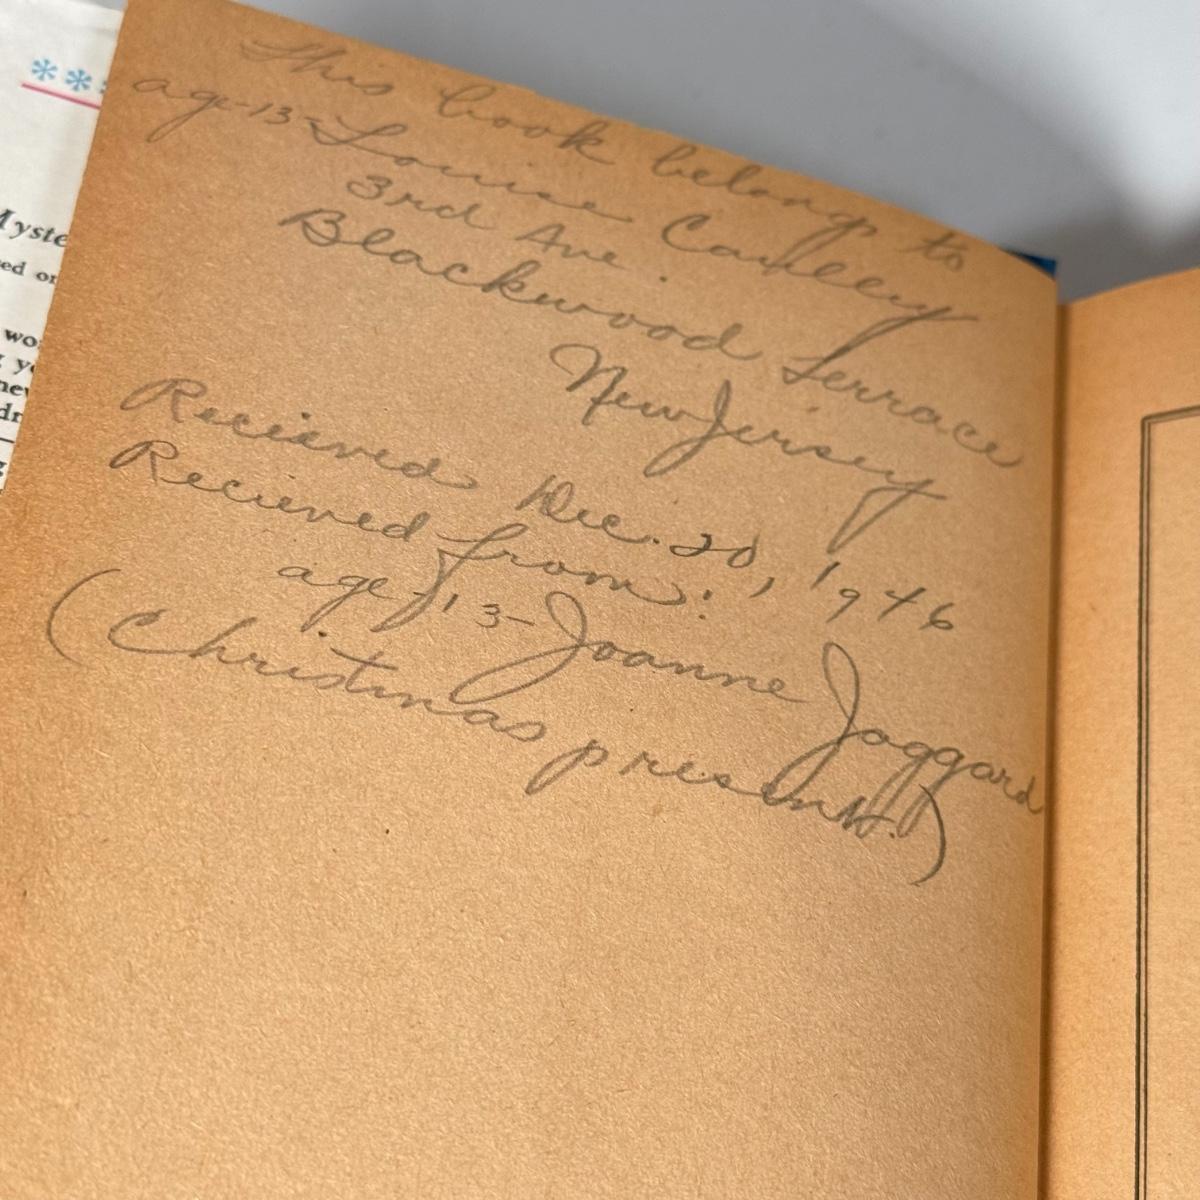 ***
Myste
ed or
wo
g y
new
dr
This book belongs to
age-13-Louise Cawlley
3rd Ave.
Blackwood Terrace
New Jersey
Recieved Dec. 20, 1946
Recieved from:
age-13-Joanne Jaggard
(Christmas present.)